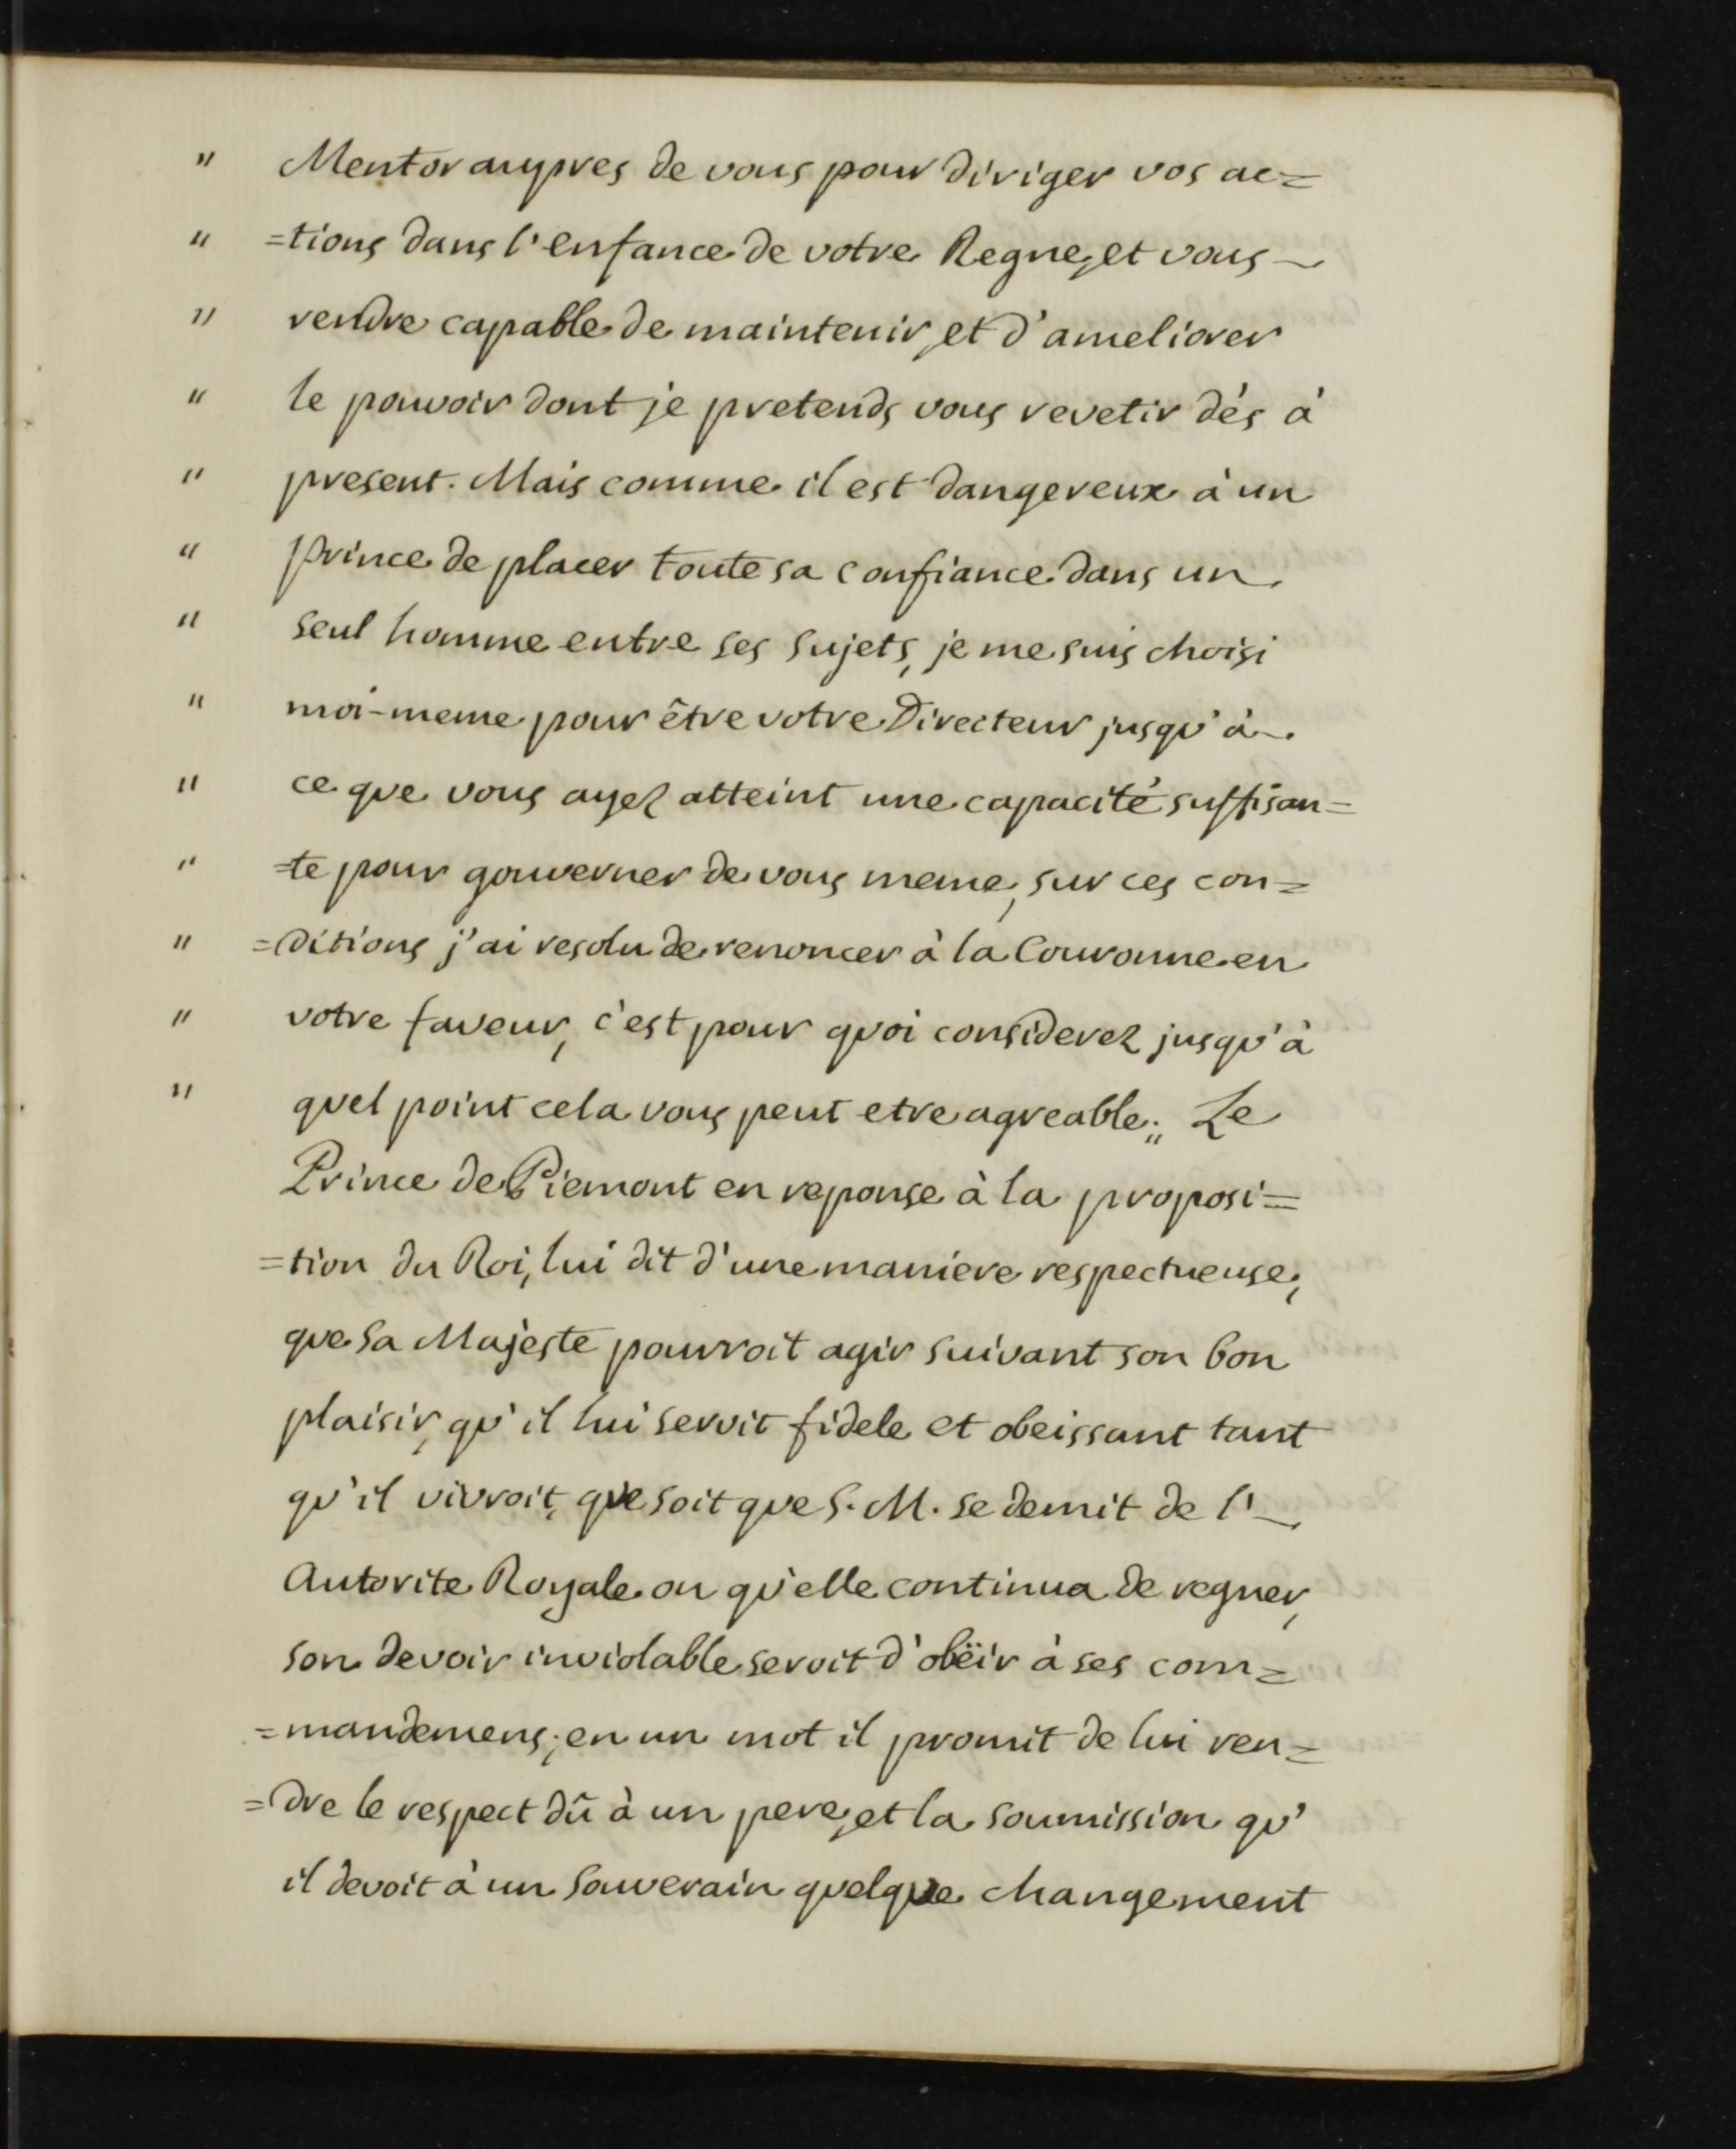 " Mentor aupres de vous pour diriger vos ac=
" =tions dans l'enfance de votre Regne, et vous
" rendre capable de maintenir, et d'ameliorer
" le pouvoir dont je pretends vous revetir dés à
" present. Mais comme il est dangereux à un
" Prince de placer toute sa confiance dans un
" seul homme entre ses sujets, je me suis choisi
" moi-meme pour être votre Directeur jusqu'à
" ce que vous ayez atteint une capacité suffisan=
" =te pour gouverner de vous meme, sur ces con=
" =ditions j'ai resolu de renoncer à la Couronne en
" votre faveur, c'est pour quoi considerez jusqu'à
" quel point cela vous peut etre agreable." Le
Prince de Piemont en reponse à la proposi=
=tion du Roi, lui dit d'une maniere respectueuse,
que sa Majeste pourroit agir suivant son bon
plaisir, qu'il lui seroit fidele et obeissant tant
qu'il vivroit, que soit que S. M. se demit de l'
Autorite Royale ou qu'elle continua de regner,
son devoir inviolable seroit d'obëir à ses com=
=mandemens; en un mot il promit de lui ren=
=dre le respect dû à un pere, et la soumission qu'
il devoit à un Souverain quelque changement